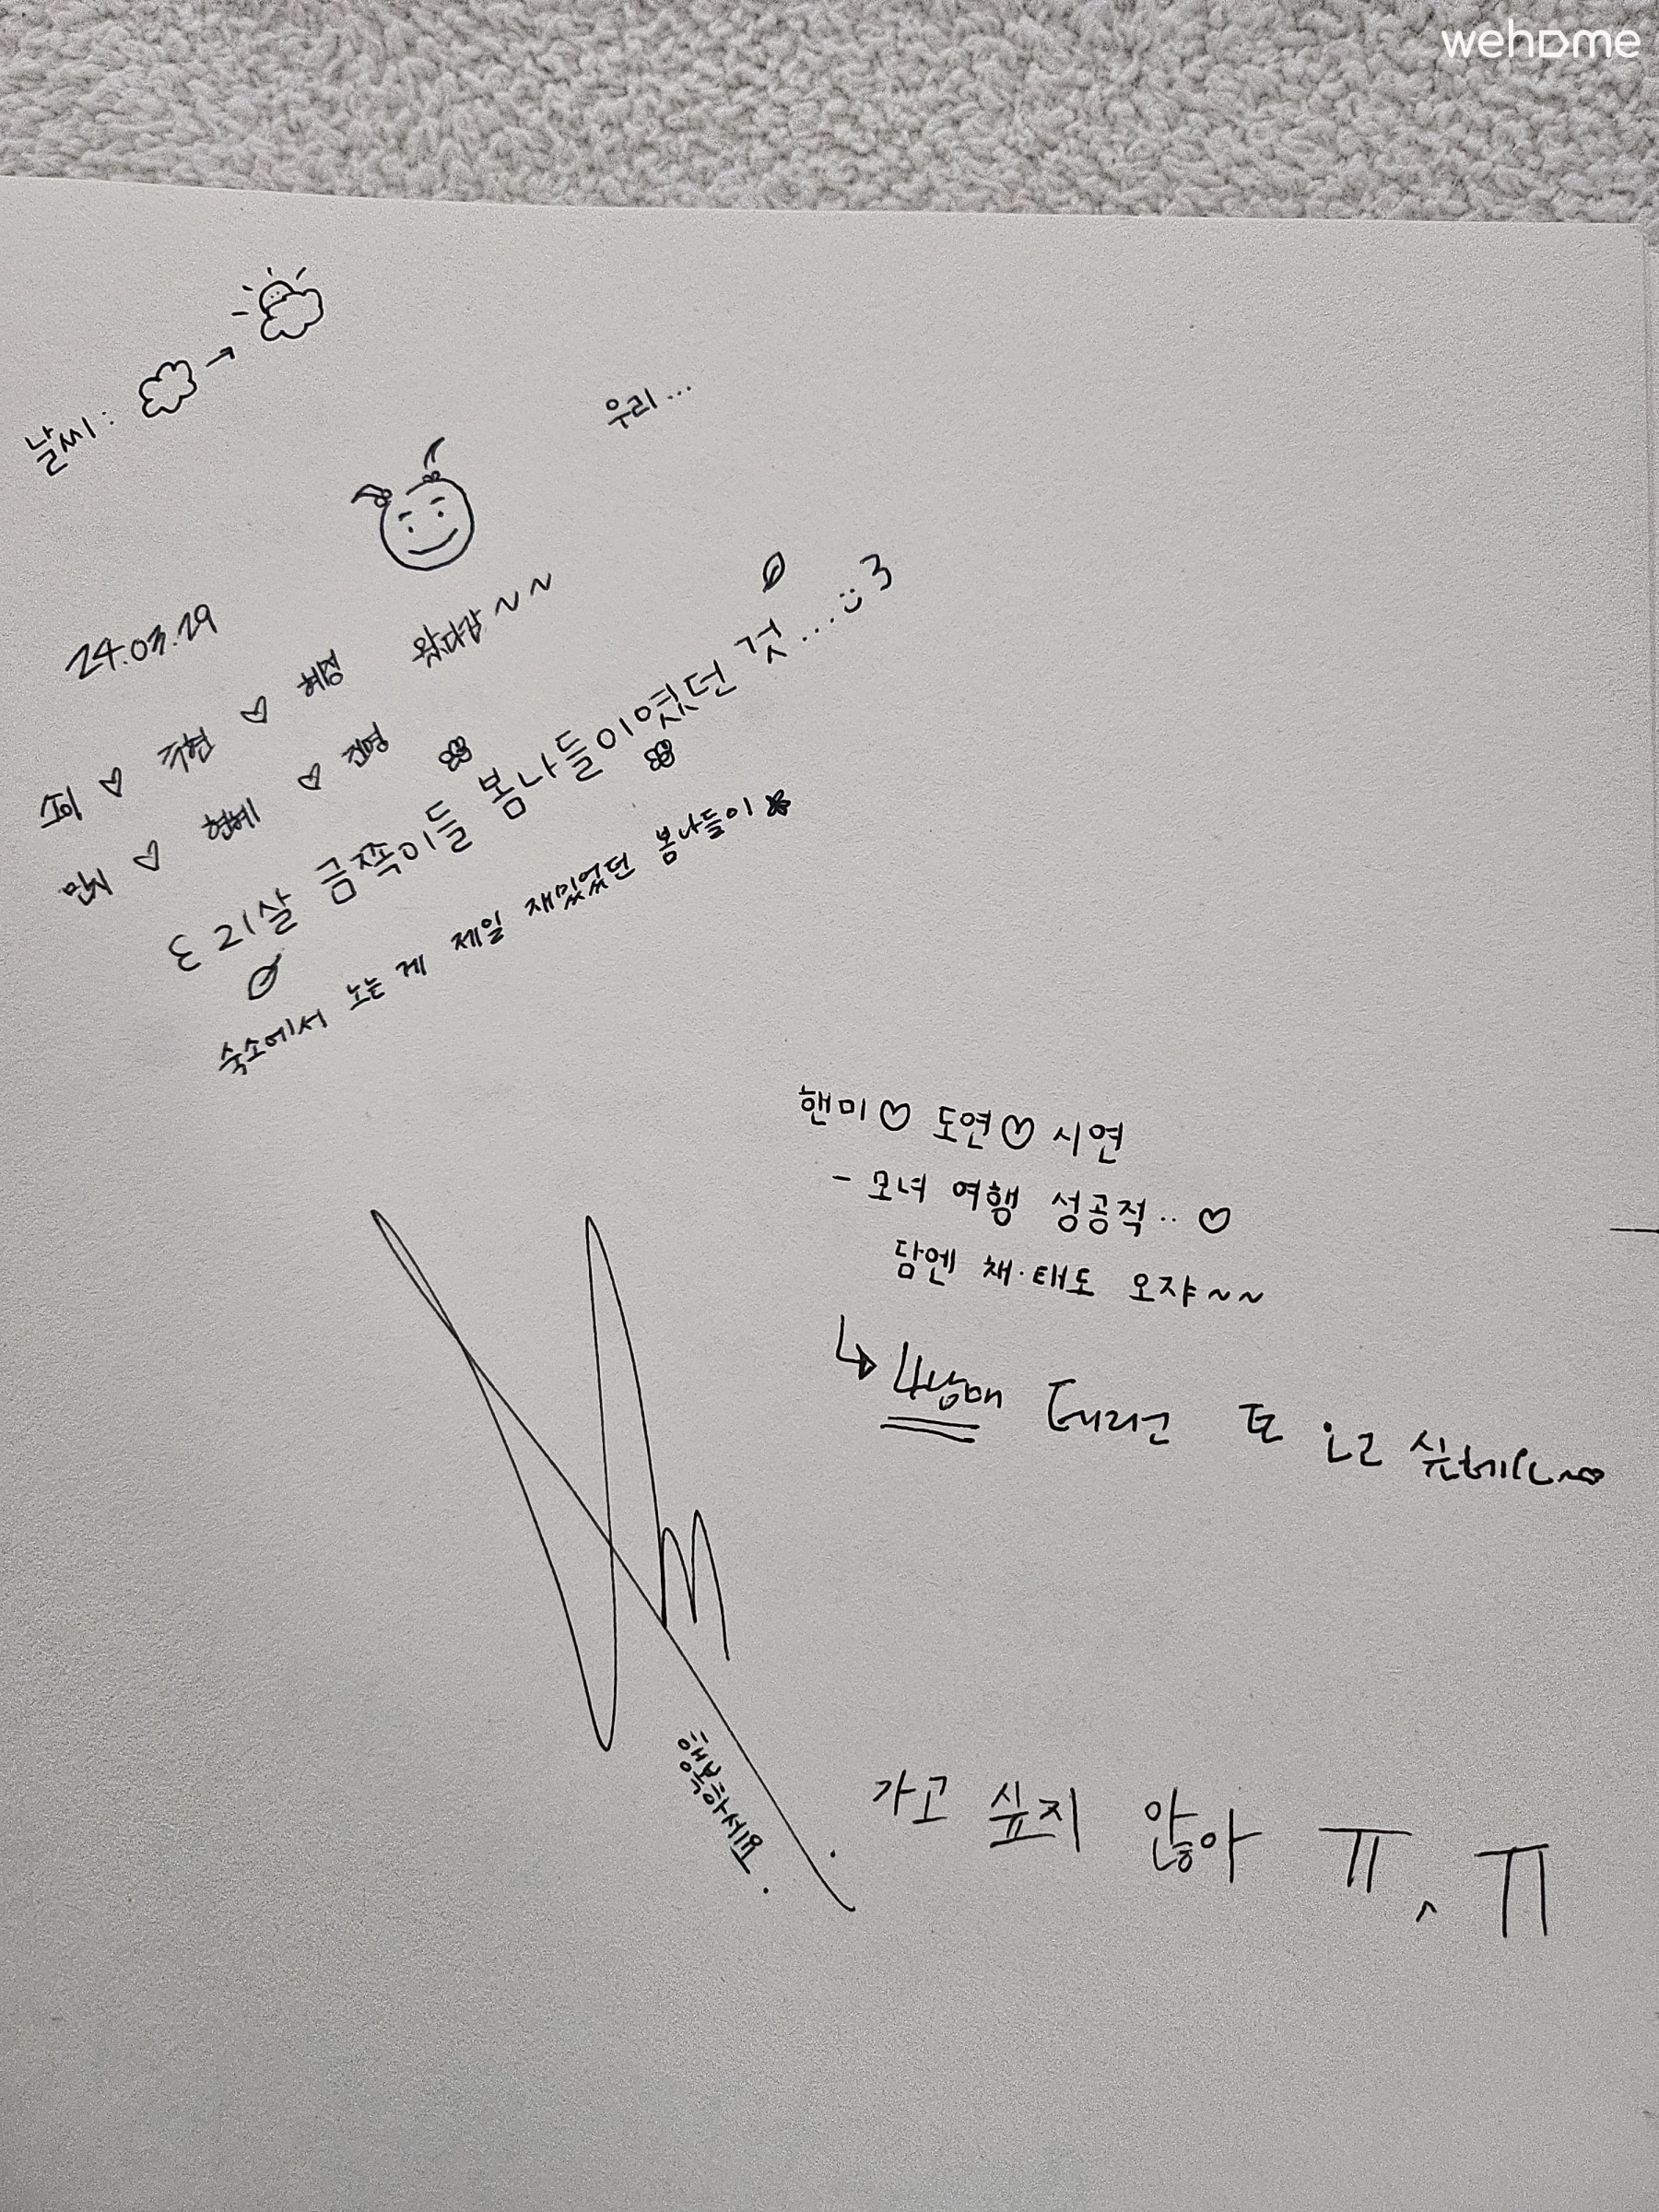 wehome
날씨 :
우리...
24.03.29
소이 ♡ 주현 ♡ 혜정 왔다감~~
민지 ♡ 현혜 ♡ 진영
ε 21살 금쪽이들 봄나들이였던 것....:) 3
숙소에서 노는 게 제일 재밌었던 봄나들이
핸미♡ 도연♡ 시연
- 모녀 여행 성공적.. ♡
담엔 채·태도 오쟈~~
↳ 4남매 데리고 또 오고
행복하세요.
가고 싶지 않아 ㅠ^ㅠ